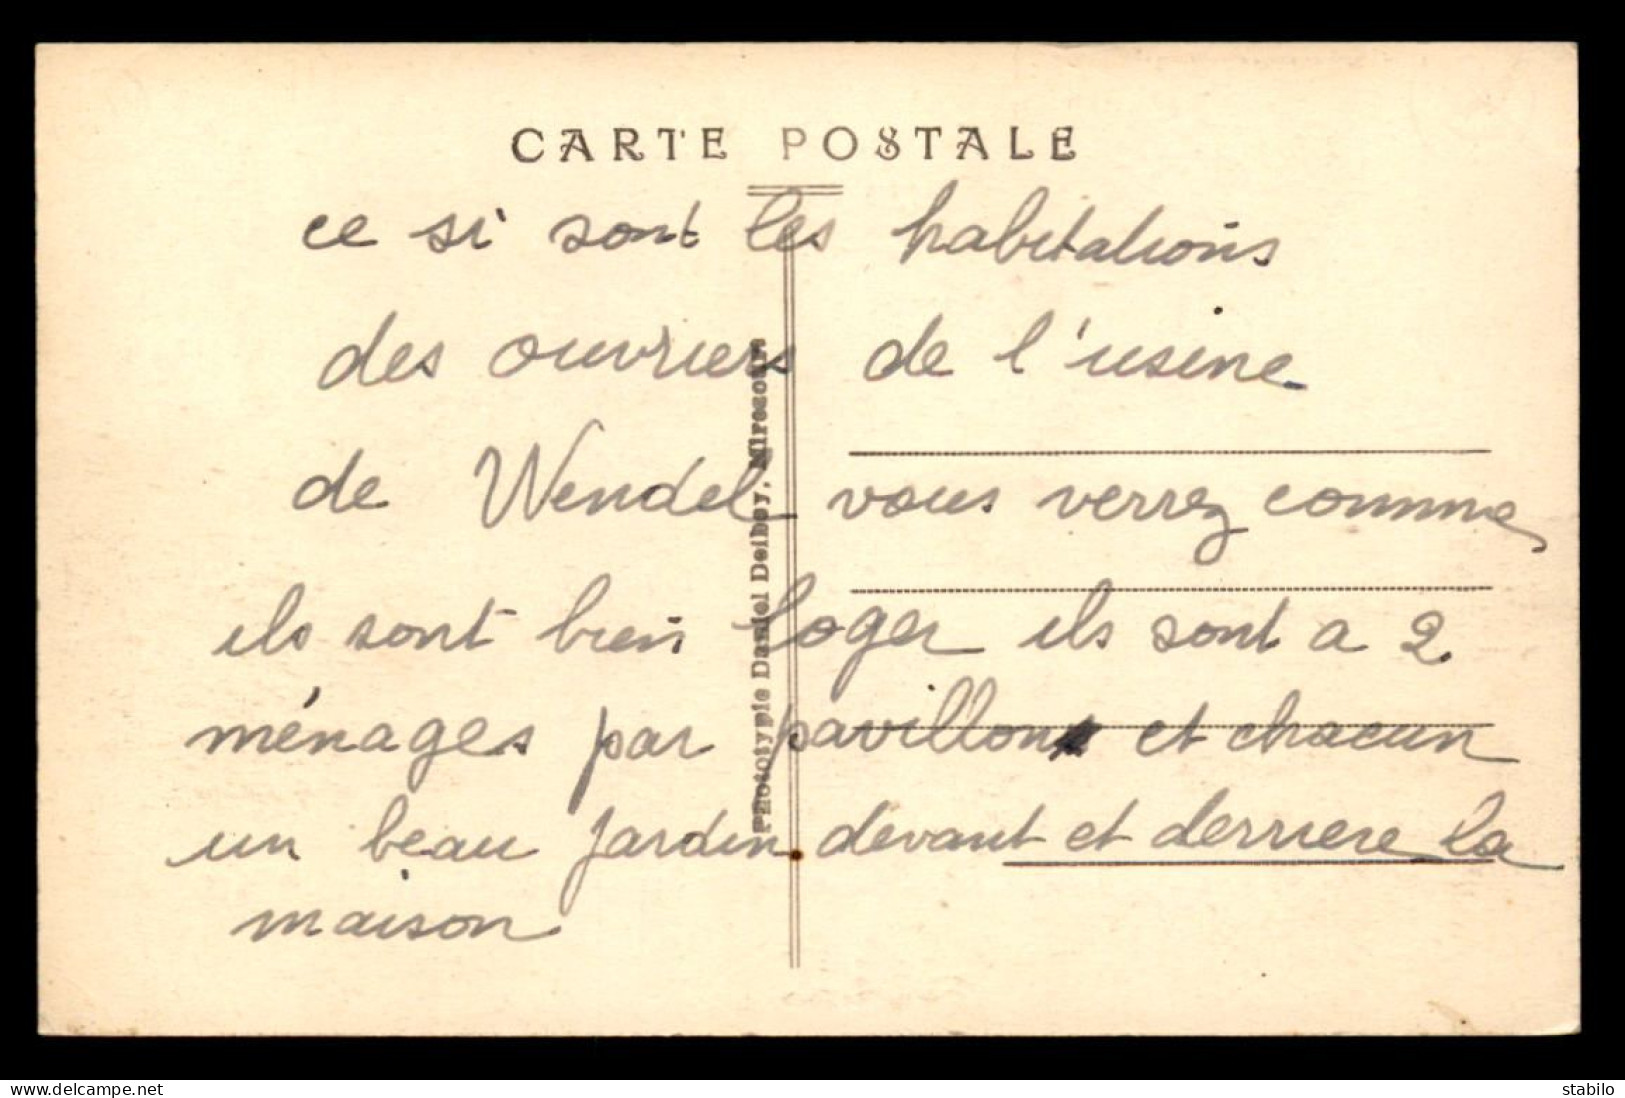 CARTE POSTALE
ce si sont les habitations
des ouvriers de l'usine
de Wendel vous verrez comme
ils sont bien loger ils sont a 2
ménages par pavillon et chacun
un beau jardin devant et derriere la
maison
Phototypie Daniel Delboy, Mirecourt
www.delcampe.net
stabilo